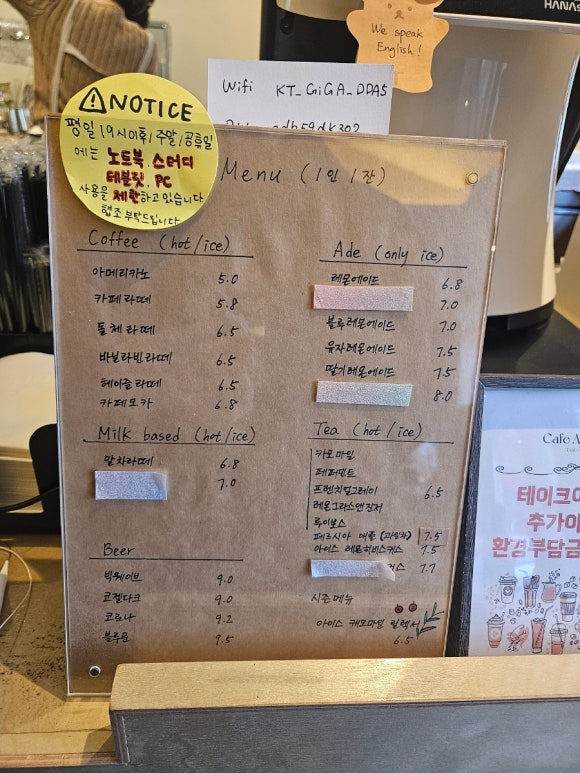 HANAS
We speak
English!
Wifi KT_GiGA_DDA5
NOTICE
평일 19시이후/주말/공휴일
에는 노트북, 스터디
테블릿, PC
사용을 제한하고 있습니다
협조 부탁드립니다
Menu (1인 1잔)
Coffee (hot/ice)
아메리카노 5.0
카페라떼 5.8
돌체라떼 6.5
바닐라빈라떼 6.5
헤이즐라떼 6.5
카페모카 6.8
Milk based (hot/ice)
말차라떼 6.8
7.0
Beer
빅웨이브 9.0
코젤다크 9.0
코로나 9.2
블루문 9.5
Ade (only ice)
레몬에이드 6.8
7.0
블루레몬에이드 7.0
유자레몬에이드 7.5
딸기레몬에이드 7.5
8.0
Tea (hot/ice)
카모마일
페퍼민트
프렌치얼그레이 6.5
레몬그라스앤진저
루이보스
페르시아 애플 (과일차) 7.5
아이스 레몬히비스커스 7.5
커스 7.7
시즌메뉴
아이스 캐모마일 릴렉서
6.5
Cafe A
테이크아
추가이
환경부담금